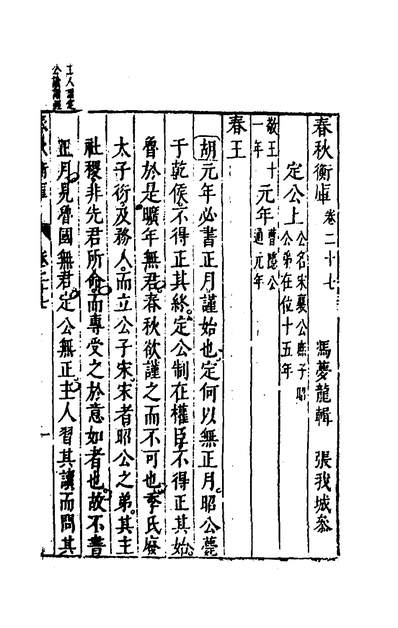 春秋衡庫 卷二十七 馮夢龍輯 張我城參
定公上 公名宋襄公庶子昭公弟在位十五年
敬王十一年 元年 曹隱公通元年
春王
胡元年必書正月謹始也定何以無正月昭公薨
于乾侯不得正其終定公制在權臣不得正其始
魯於是曠年無君春秋欲謹之而不可也季氏廢
太子衍及務人而立公子宋宋者昭公之弟其主
社稷非先君所命而專受之於意如者也故不書
正月見魯國無君定公無正主人習其讀而問其
春秋衡庫 卷二十七 一